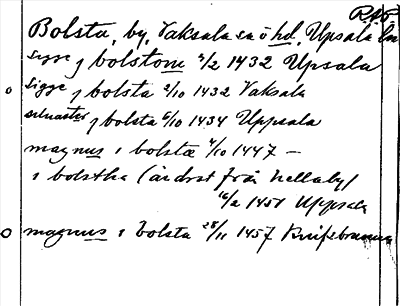 R.A.P.
Bolsta, by, Vaksala sn o hd, Upsala län
Sigge j bolstom 2/2 1432 Upsala
Sigge j bolsta 2/10 1432 Vaksala
j bolsta 6/10 1434 Uppsala
magnus i bolstæ 4/10 1447 —
i bolstha (ärdat från Nellaby)
16/2 1451 Uppsala
magnus i bolsta 28/11 1457